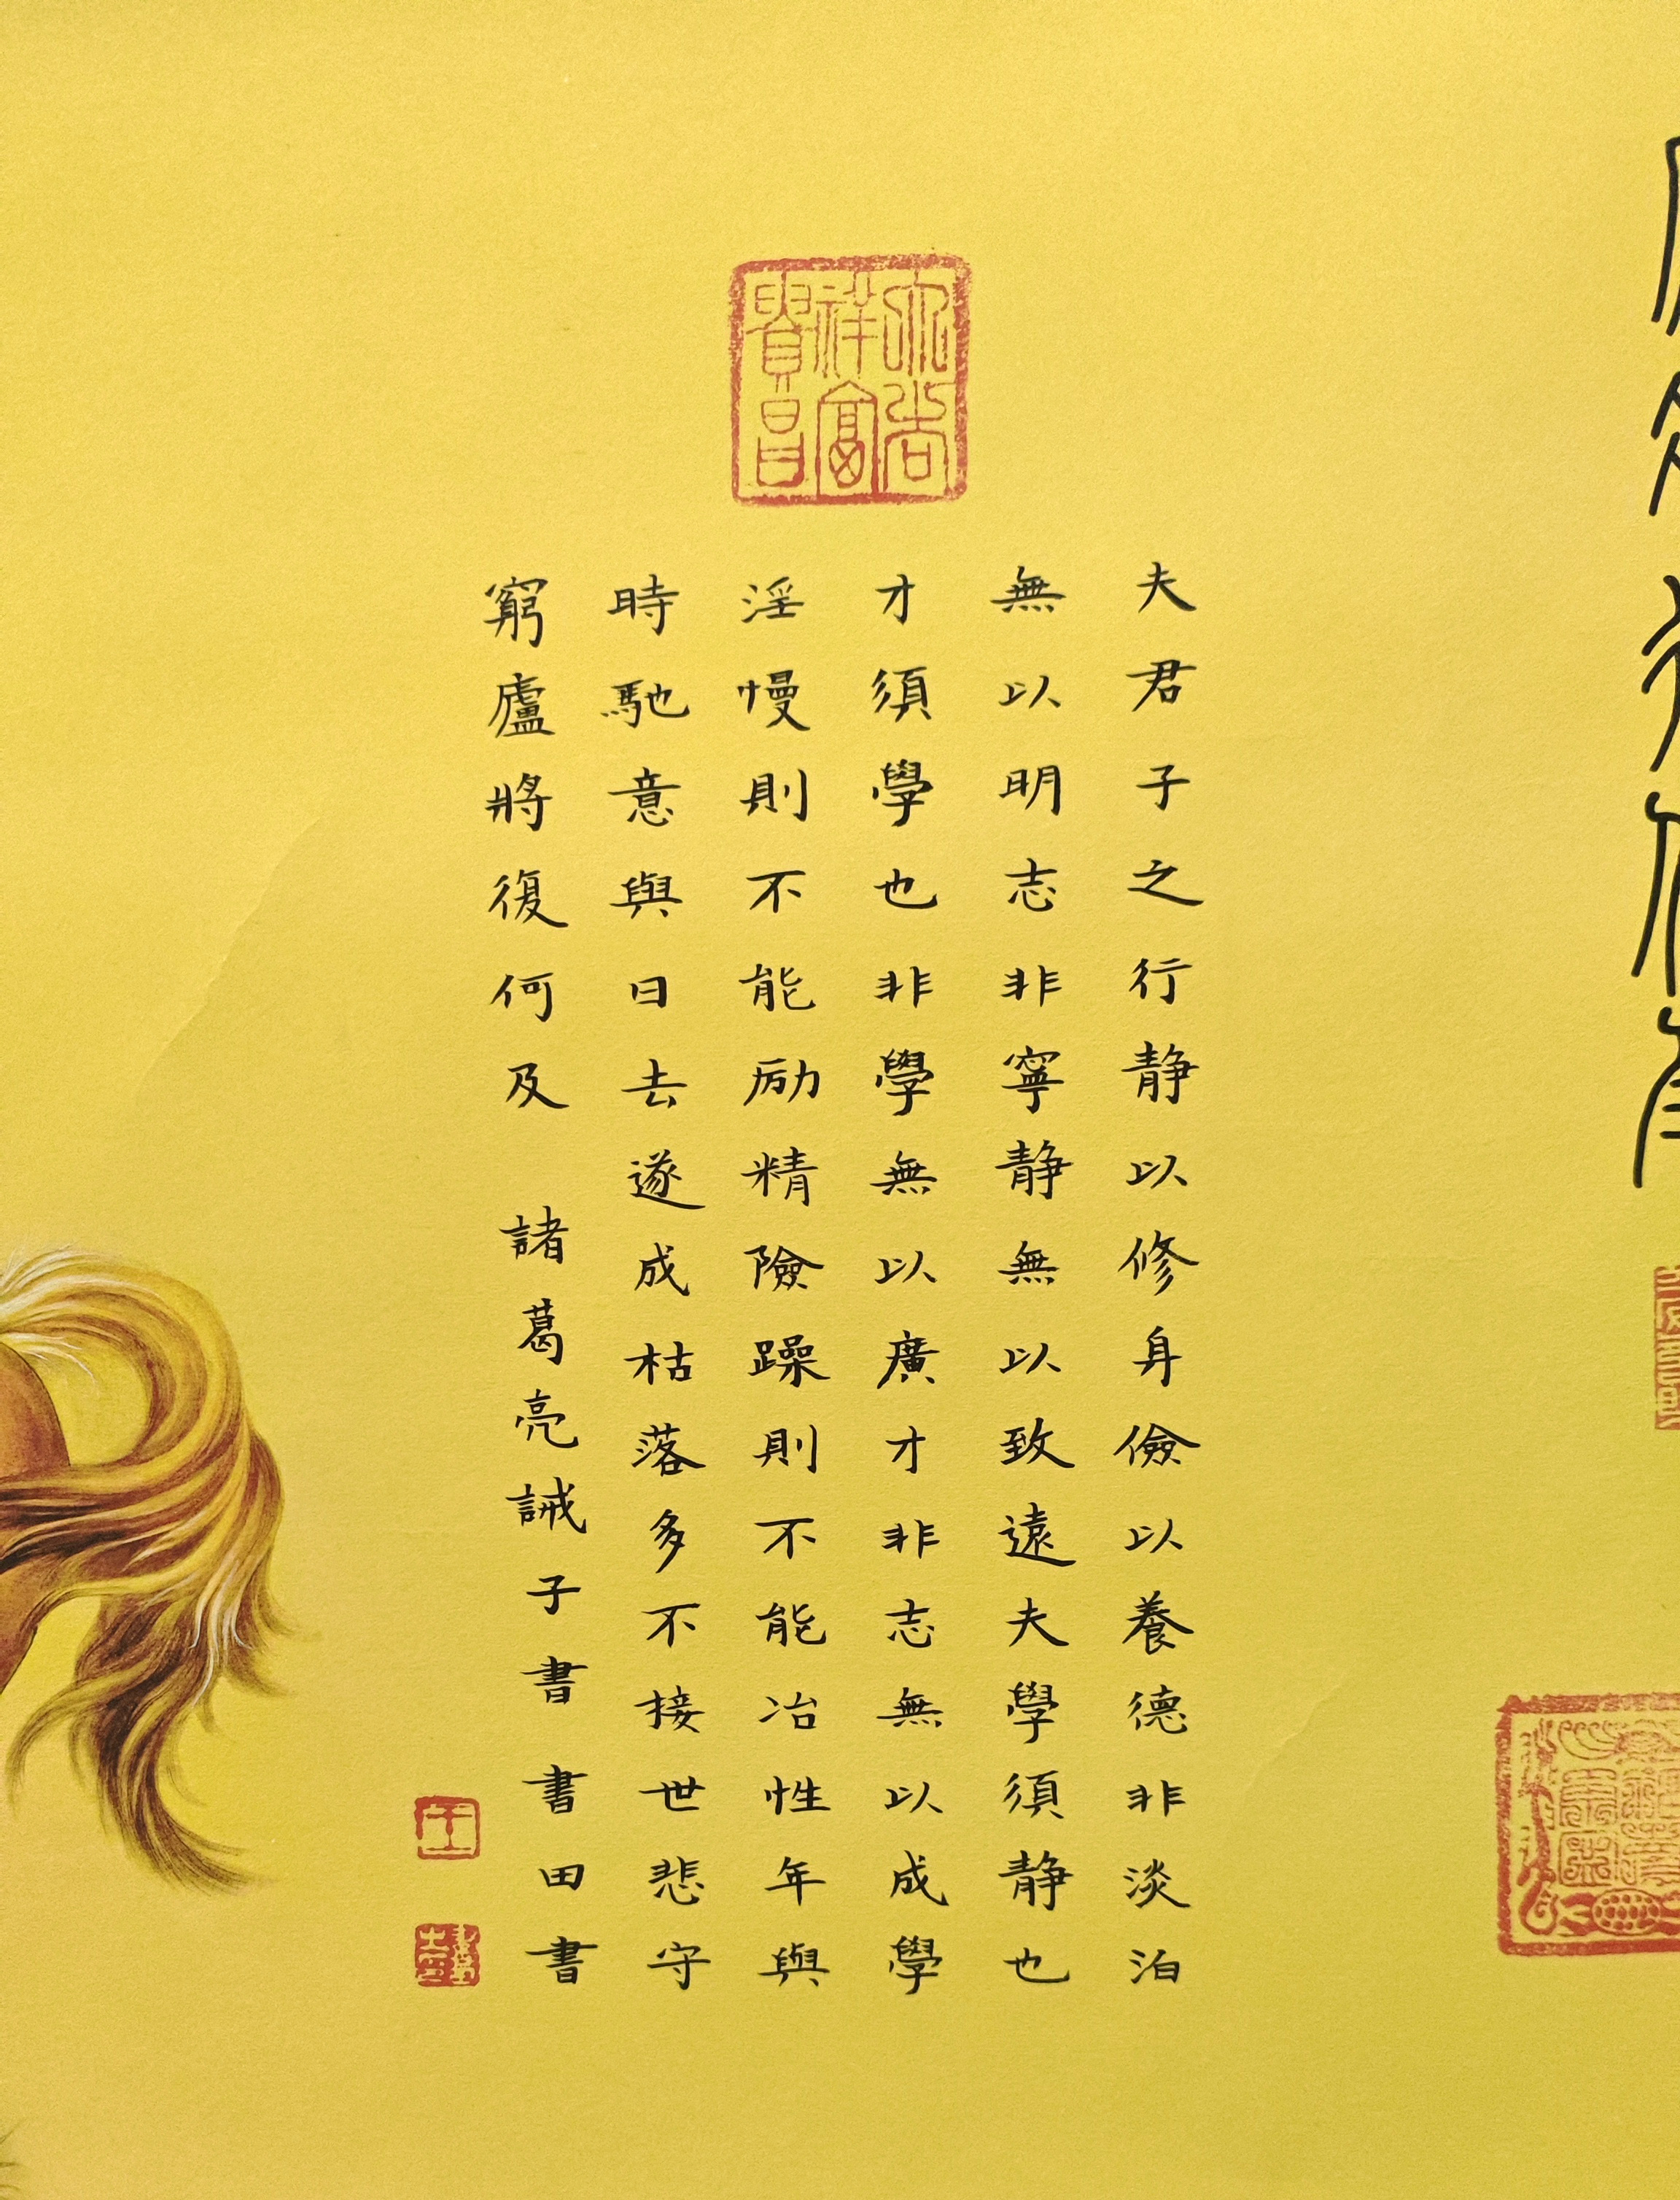 夫君子之行静以修身儉以養德非淡泊
無以明志非寧静無以致遠夫學須静也
才須學也非學無以廣才非志無以成學
淫慢則不能励精險躁則不能冶性年與
時馳意與日去遂成枯落多不接世悲守
窮廬將復何及 諸葛亮誡子書 書田書